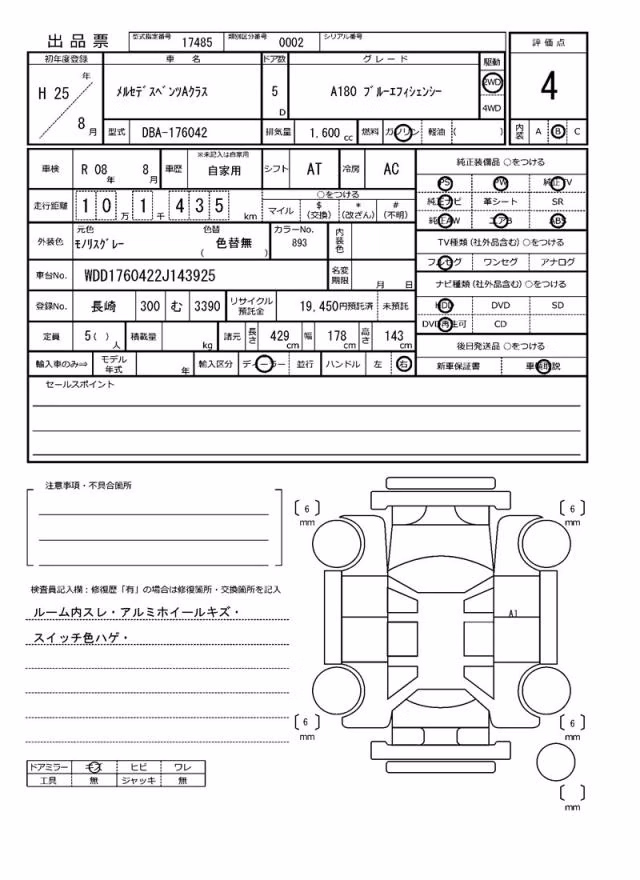 出品票 型式指定番号 17485 類別区分番号 0002 シリアル番号
評価点
4
初年度登録 車名 ドア数 グレード 駆動
H 25 年 8 月 メルセデスベンツAクラス 5 D A180 ブルーエフィシェンシー 2WD 4WD
型式 DBA-176042 排気量 1,600 cc 燃料 ガソリン 軽油 ( )
内装 A B C
車検 R 08 年 8 月 車歴 ※未記入は自家用 自家用 シフト AT 冷房 AC
走行距離 1 0 万 1 千 4 3 5 km ○をつける マイル $(交換) *(改ざん) #(不明)
外装色 元色 モノリスグレー 色替 ( 色替無 ) カラーNo. 893 内装色
車台No. WDD1760422J143925 名変期限 月 日
登録No. 長崎 300 む 3390 リサイクル預託金 19,450円預託済 未預託
定員 5( ) 人 積載量 kg 諸元 長さ 429 cm 幅 178 cm 高さ 143 cm
輸入車のみ⇒ モデル年式 年 輸入区分 ディーラー 並行 ハンドル 左 右
純正装備品 ○をつける
PS PW 純正TV
純正ナビ 革シート SR
純正AW エアB ABS
TV種類(社外品含む)○をつける
フルセグ ワンセグ アナログ
ナビ種類(社外品含む)○をつける
HDD DVD SD
DVD再生可 CD
後日発送品 ○をつける
新車保証書 車輌取説
セールスポイント
注意事項・不具合箇所
検査員記入欄:修復歴「有」の場合は修復箇所・交換箇所を記入
ルーム内スレ・アルミホイールキズ・
スイッチ色ハゲ・
ドアミラー キズ ヒビ ワレ
工具 無 ジャッキ 無
[ 6 ] mm [ 6 ] mm
A1
[ 6 ] mm [ 6 ] mm
[ ] mm